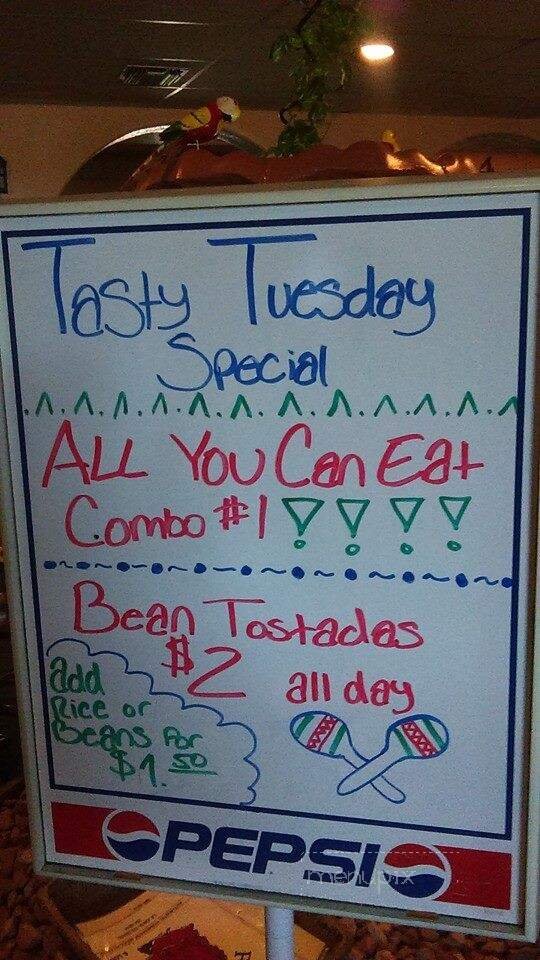 Tasty Tuesday
Special
ALL You Can Eat
Combo #1 !!!!
Bean Tostadas
$2 all day
add
Rice or
Beans For
$1.50
PEPSI
menupix